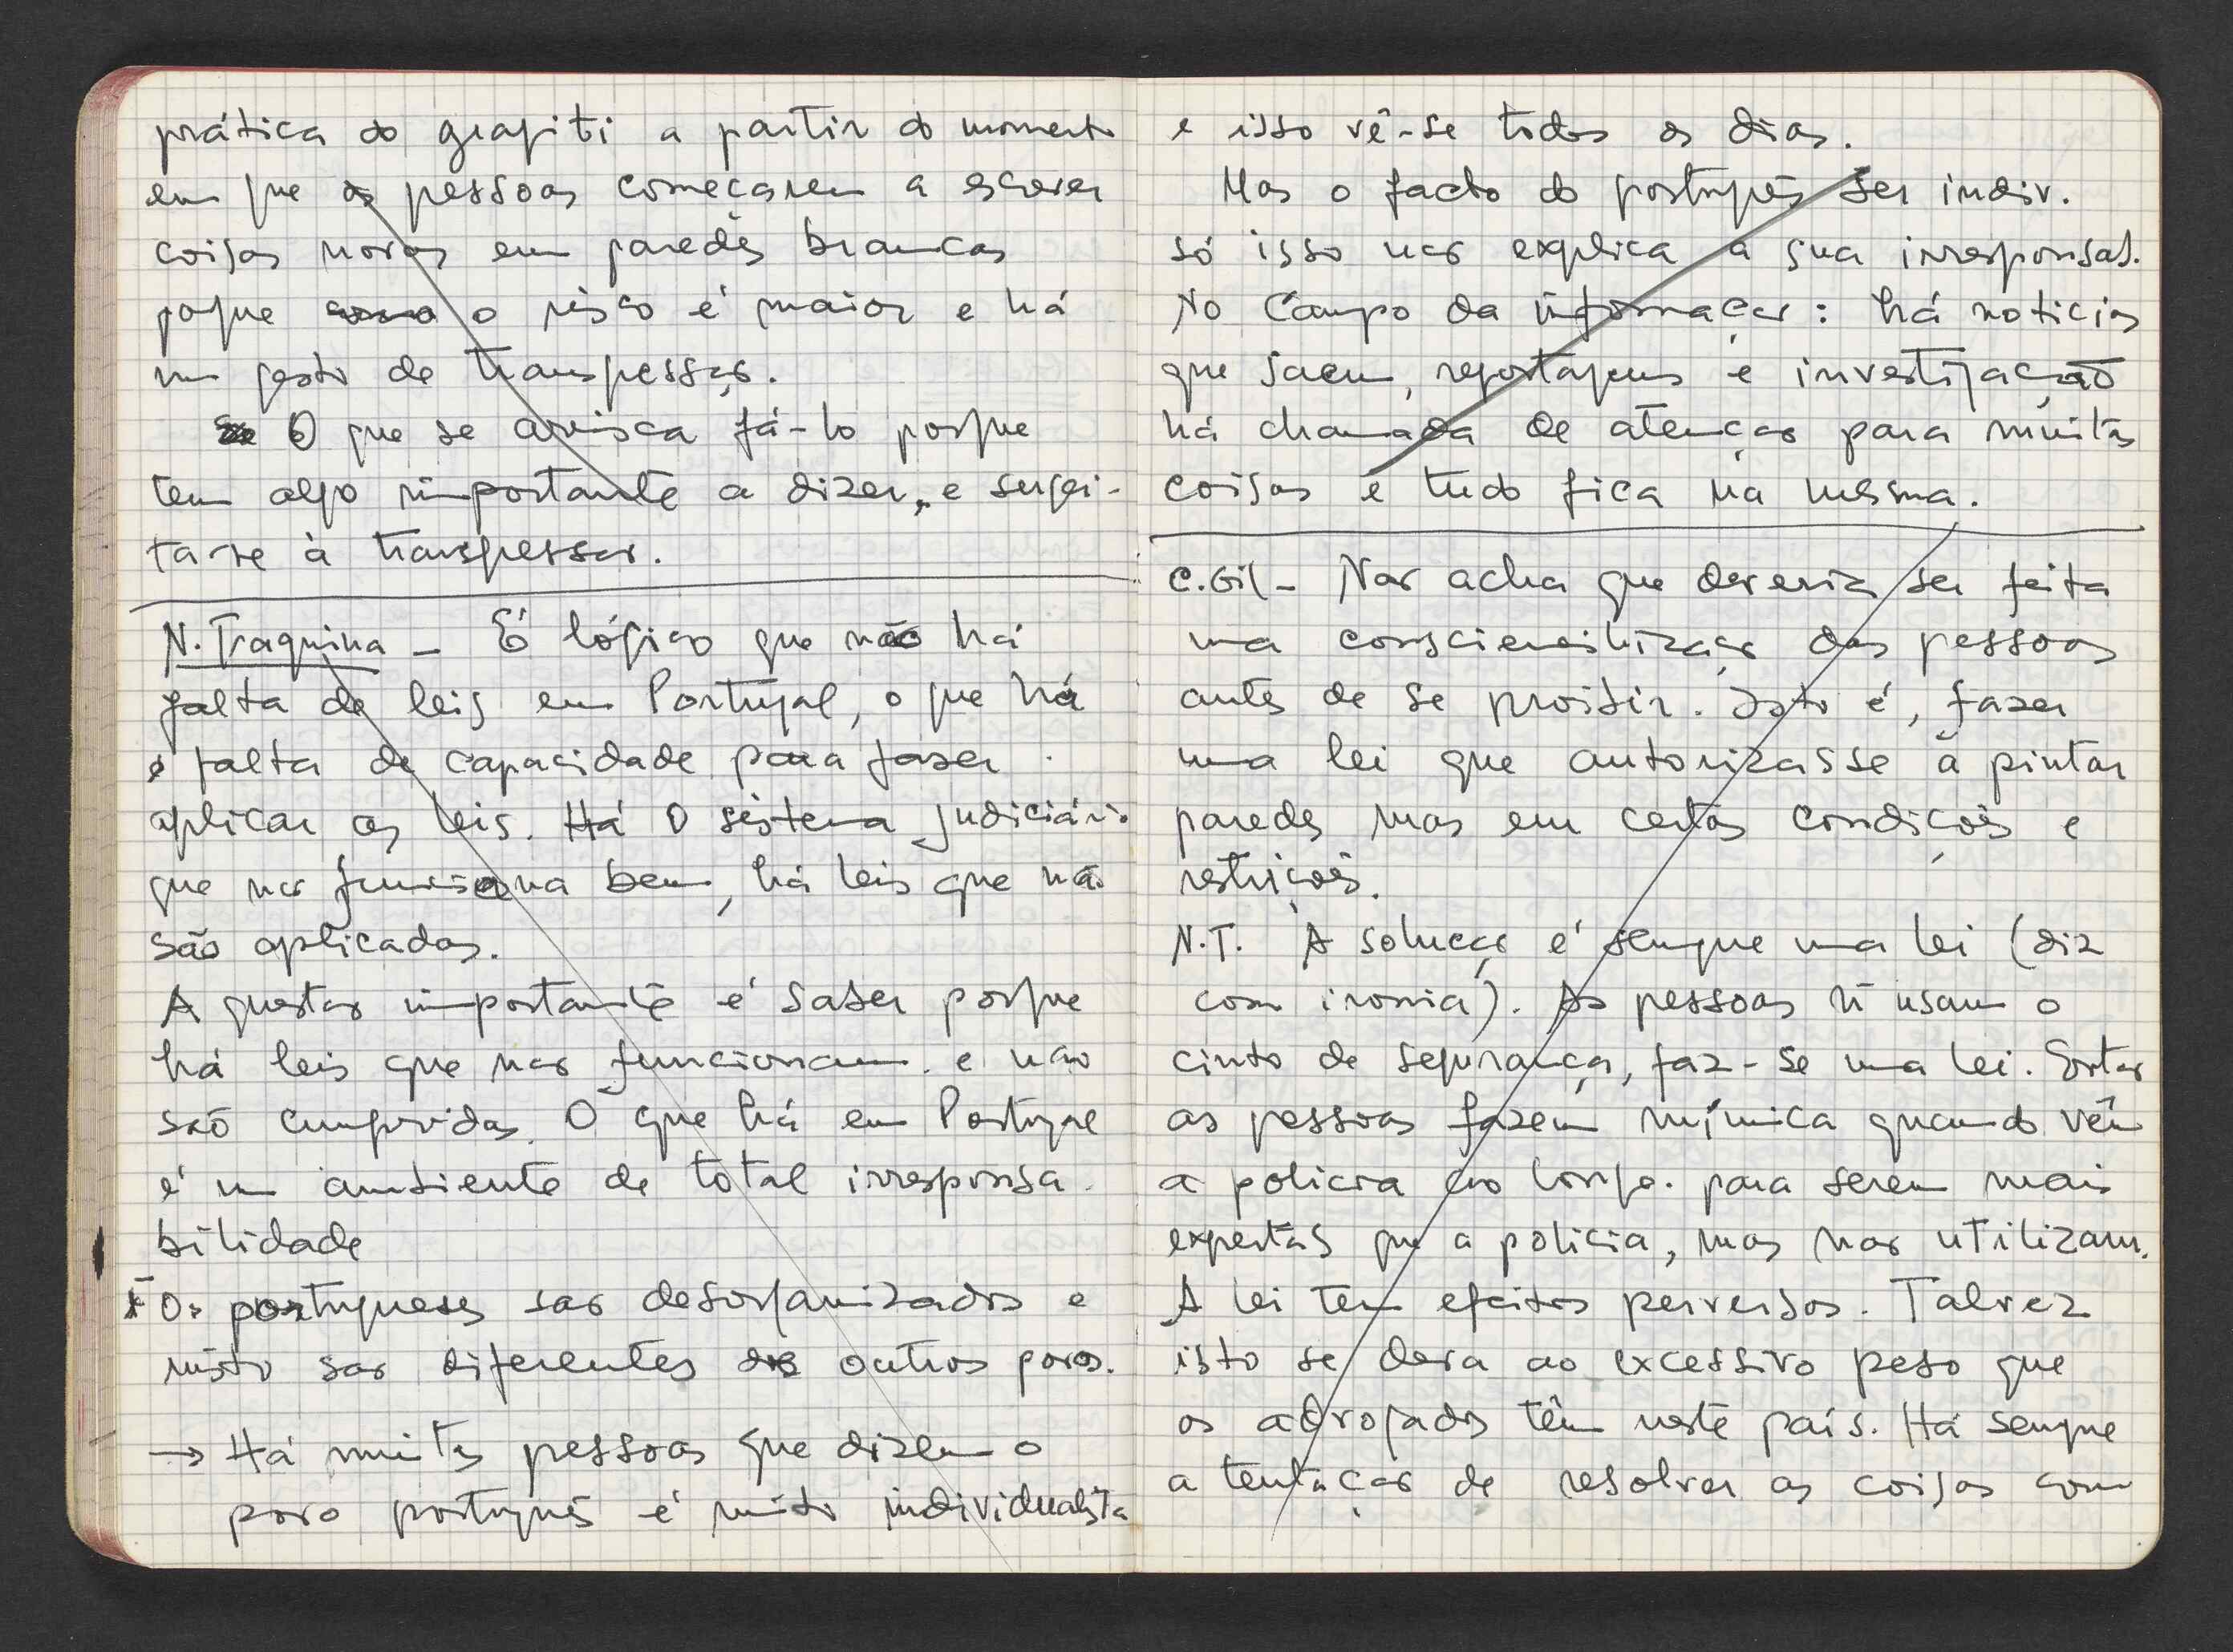 prática do grafiti a partir do momento
em que as pessoas começarem a escrever
coisas novas em paredes brancas
porque o risco é maior e há
um gesto de transgressão.
O que se arrisca fá-lo porque
tem algo importante a dizer, e sujei-
ta-se à transgressão.
N. Traquina - É lógico que não há
falta de leis em Portugal, o que há
é falta de capacidade para fazer
aplicar as leis. Há o sistema judiciário
que não funciona bem, há leis que não
são aplicadas.
A questão importante é saber porque
há leis que não funcionam e não
são cumpridas. O que há em Portugal
é um ambiente de total irresponsa-
bilidade
* Os portugueses são desorganizados e
nisto são diferentes dos outros povos.
→ Há muitas pessoas que dizem o
povo português é muito individualista
e isso vê-se todos os dias.
Mas o facto do português ser indiv.
só isso não explica a sua irresponsab.
No Campo da informação: há noticias
que saem, reportagens e investigação
há chamada de atenção para muitas
coisas e tudo fica na mesma.
C. Gil - Não acha que deveria ser feita
uma consciencilização das pessoas
antes de se proibir. Isto é, fazer
uma lei que autorizasse a pintar
paredes mas em certas condições e
restrições.
N.T. A solução é sempre uma lei (diz
com ironia). As pessoas ñ usam o
cinto de segurança, faz-se uma lei. Então
as pessoas fazem mímica quando vêm
a policia ao longo. para serem mais
expertas que a policia, mas não utilizam.
A lei tem efeitos perversos. Talvez
isto se deva ao excessivo peso que
os advogados têm neste país. Há sempre
a tentação de resolver as coisas com